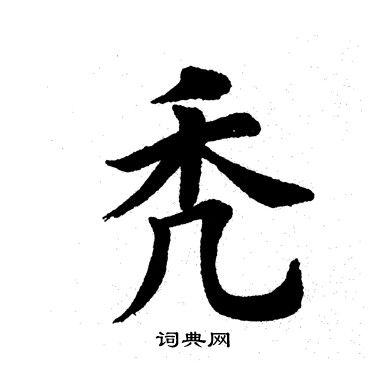 秃
词典网